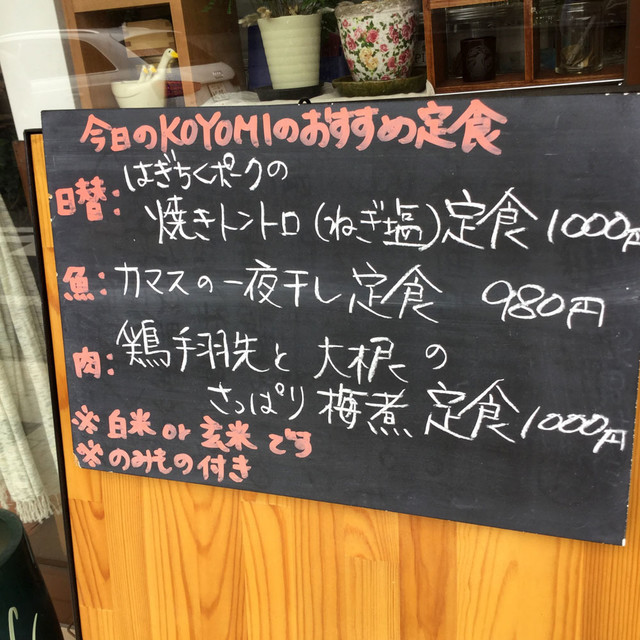 今日のKOYOMIのおすすめ定食
日替: はぎちくポークの
焼きトントロ(ねぎ塩)定食 1000円
魚: カマスの一夜干し定食 980円
肉: 鶏手羽先と大根の
さっぱり梅煮定食 1000円
※白米or玄米です
※のみもの付き